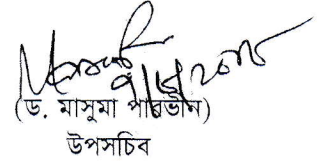 (ড. মাসুমা পারভীন)
উপসচিব